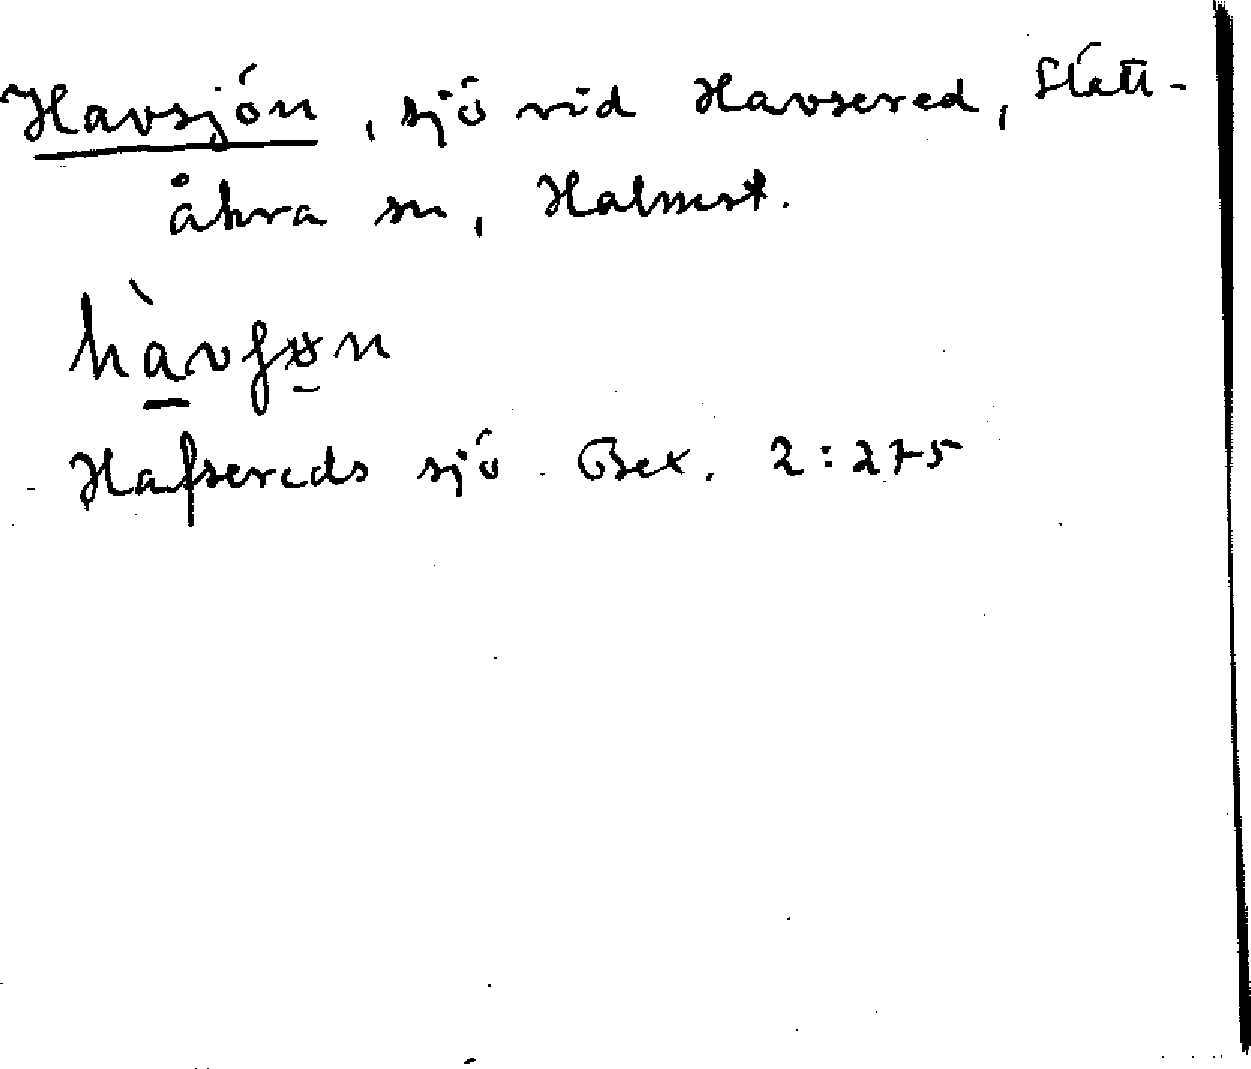 Havsjön, sjö vid Havsered, Slätt-
åkra sn, Halmst.
hàvʃøn
Hafsereds sjö Bex. 2:275